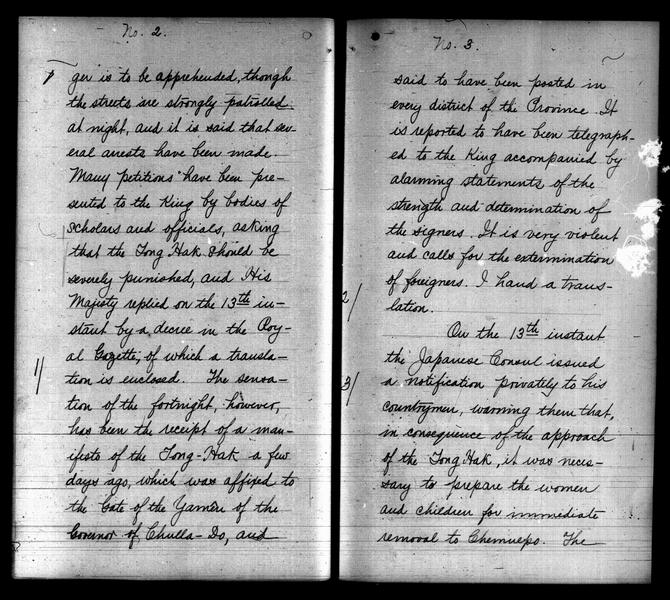 No. 2.
ger is to be apprehended, though
the streets are strongly patrolled
at night, and it is said that sev-
eral arrests have been made.
Many petitions have been pre-
sented to the King by bodies of
scholars and officials, asking
that the Tong Hak should be
severely punished, and His
Majesty replied on the 13th in-
stant by a decree in the Roy-
al Gazette, of which a transla-
1/
tion is enclosed. The sensa-
tion of the fortnight, however,
has been the receipt of a man-
ifesto of the Tong-Hak a few
days ago, which was affixed to
the Gate of the Yamen of the
Governor of Chulla-Do, and
No. 3.
said to have been posted in
every district of the Province. It
is reported to have been telegraph-
ed to the King accompanied by
alarming statements of the
strength and determination of
the signers. It is very violent
and calls for the extermination
of foreigners. I hand a trans-
2/
lation.
On the 13th instant
the Japanese Consul issued
3/
a notification privately to his
countrymen, warning them that,
in consequence of the approach
of the Tong Hak, it was neces-
sary to prepare the women
and children for immediate
removal to Chemulpo. The